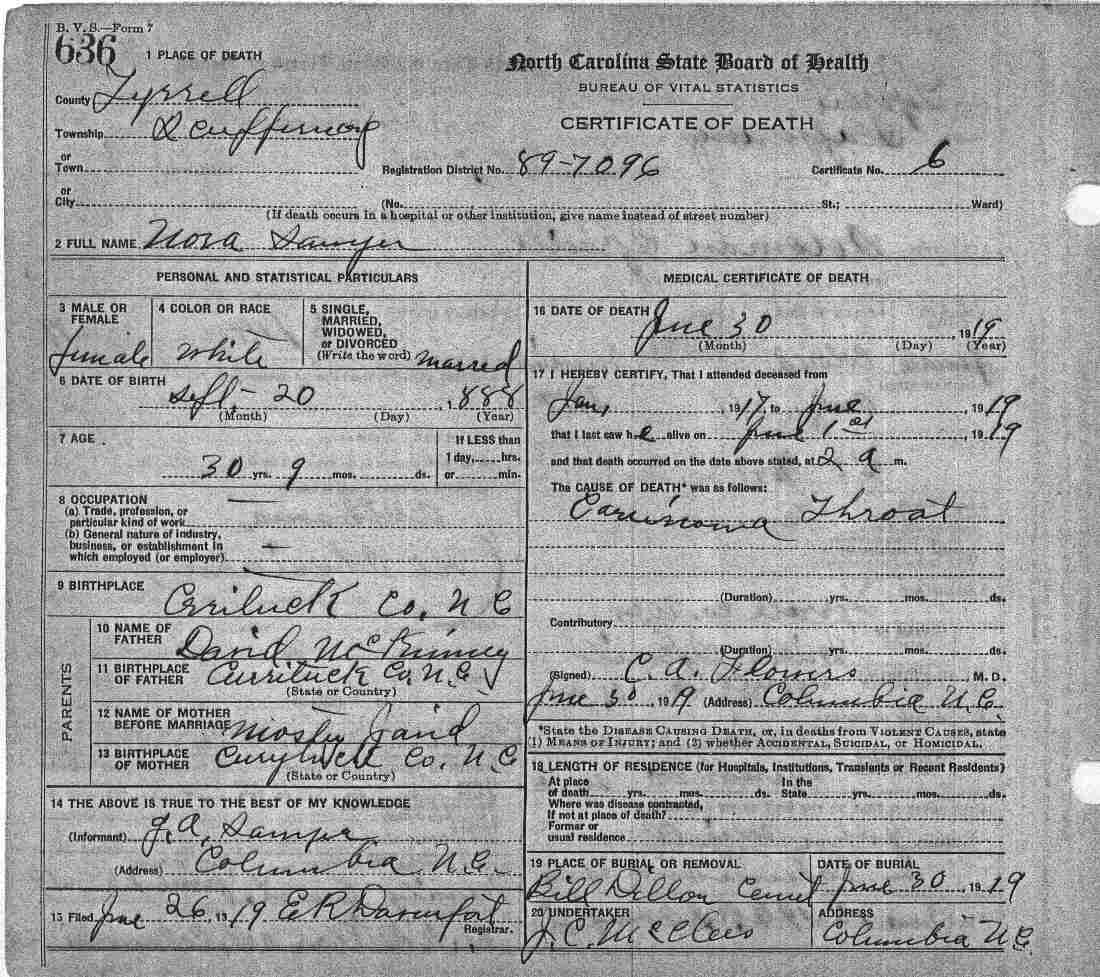 B. V. S.—Form 7
636
1 PLACE OF DEATH
North Carolina State Board of Health
BUREAU OF VITAL STATISTICS
CERTIFICATE OF DEATH
County Tyrrell
Township
or
Town
Registration District No. 89-7096
Certificate No. 6
or
City
(No. St.; Ward)
(If death occurs in a hospital or other institution, give name instead of street number)
2 FULL NAME Nora Sawyer
PERSONAL AND STATISTICAL PARTICULARS
3 MALE OR FEMALE
female
4 COLOR OR RACE
White
5 SINGLE, MARRIED, WIDOWED, or DIVORCED
(Write the word) married
6 DATE OF BIRTH
Sept - 20, 1888
(Month) (Day) (Year)
7 AGE
30 yrs. 9 mos. ds.
If LESS than
1 day, hrs.
or min.
8 OCCUPATION
(a) Trade, profession, or
particular kind of work
(b) General nature of industry,
business, or establishment in
which employed (or employer)
9 BIRTHPLACE
Crrituck Co, N C
PARENTS
10 NAME OF FATHER
David McKinney
11 BIRTHPLACE OF FATHER
Currituck Co, N.C.
(State or Country)
12 NAME OF MOTHER BEFORE MARRIAGE
13 BIRTHPLACE OF MOTHER
Co. N. C
(State or Country)
14 THE ABOVE IS TRUE TO THE BEST OF MY KNOWLEDGE
(Informant) J. A. Sawyer
(Address) Columbia N.C.
15 Filed June 26, 1919 E R Davenport
Registrar.
MEDICAL CERTIFICATE OF DEATH
16 DATE OF DEATH
June 30, 1919
(Month) (Day) (Year)
17 I HEREBY CERTIFY, That I attended deceased from
Jan, 1917, to June, 1919
that I last saw he alive on June 1st, 1919
and that death occurred on the date above stated, at 2 a m.
The CAUSE OF DEATH* was as follows:
Throat
(Duration) yrs. mos. ds.
Contributory
(Duration) yrs. mos. ds.
(Signed) C. A. Flowers, M. D.
June 30 1919 (Address) Columbia N.C.
*State the DISEASE CAUSING DEATH, or, in deaths from VIOLENT CAUSES, state
(1) MEANS OF INJURY; and (2) whether ACCIDENTAL, SUICIDAL, or HOMICIDAL.
18 LENGTH OF RESIDENCE (for Hospitals, Institutions, Transients or Recent Residents)
At place of death yrs. mos. ds. In the State yrs. mos. ds.
Where was disease contracted,
If not at place of death?
Former or
usual residence
19 PLACE OF BURIAL OR REMOVAL
Bill Dillon Cemet
DATE OF BURIAL
June 30, 1919
20 UNDERTAKER
J. C. McClees
ADDRESS
Columbia N.C.